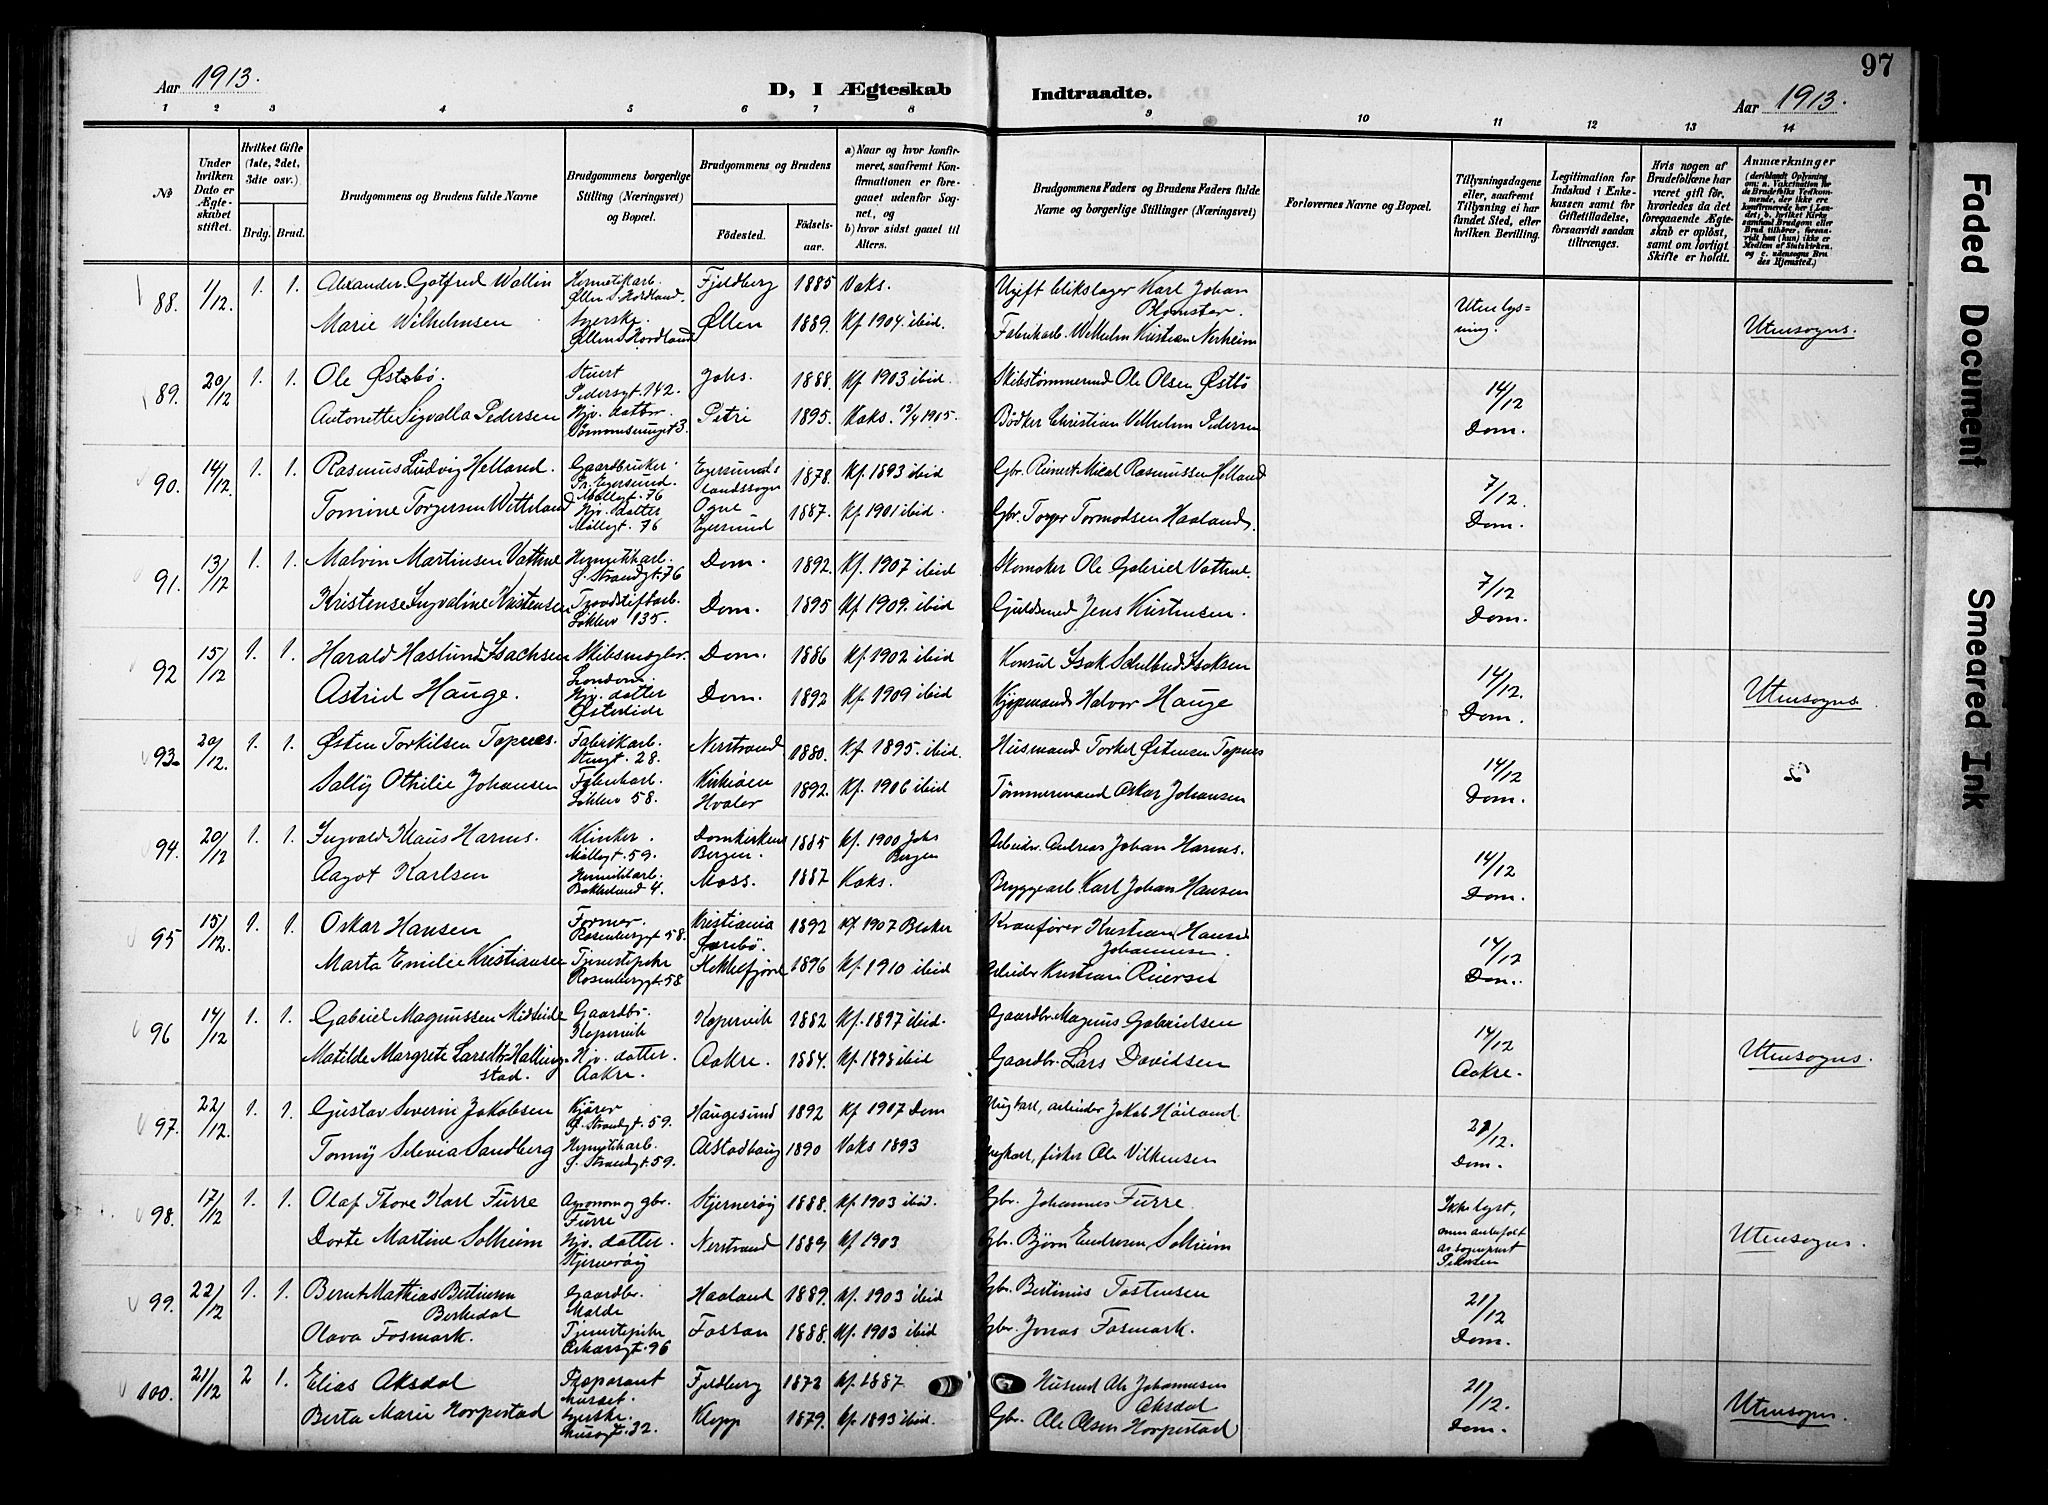 97
Aar 1913.
D, I Ægteskab Indtraadte.
Aar 1913.
1 2 3 4 5 6 7 8 9 10 11 12 13 14
№
Under hvilken Dato er Ægteskabet stiftet.
Hvilket Gifte (1ste, 2det, 3die osv.)
Brdg. Brud.
Brudgommens og Brudens fulde Navne
Brudgommens borgerlige Stilling (Næringsvei) og Bopæl.
Brudgommens og Brudens
Fødested.
Fødselsaar.
a) Naar og hvor konfirmeret, saafremt Konfirmationen er foregaaet udenfor Sognet, og
b) hvor sidst gaaet til Alters.
Brudgommens Faders og Brudens Faders fulde Navne og borgerlige Stillinger (Næringsvei)
Forlovernes Navne og Bopæl.
Tillysningsdagene eller, saafremt Tillysning ei har fundet Sted, efter hvilken Bevilling.
Legitimation for Indskud i Enkekassen samt for Giftetilladelse, forsaavidt saadan tiltrænges.
Hvis nogen af Brudefolkene har været gift før, hvorledes da det foregaaende Ægteskab er opløst, samt om lovligt Skifte er holdt.
Anmærkninger (deriblandt Oplysning om: a. Vaccination for de Brudefolks Vedkommende, der ikke ere konfirmerede her i Landet; b. hvilket Kirkesamfund Brudgom eller Brud tilhører, forsaavidt han (hun) ikke er Medlem af Statskirken, og c. udensogns Brudes Hjemsted.)
88. 1/12. 1. 1. Alexander Gotfred Wallin Hermetikarb. Ølen S. Hordland. Fjeldberg 1885 Vaks. Ugift blikslager Karl Johan Blomster. Uten lysning.
Marie Wilhelmsen Syerske Ølen S. Hordland Ølen 1889. Kf 1904. ibid. Fabrikarb. Wilhelm Kristian Nerheim Utensogns.
89. 20/12 1. 1. Ole Østebø. Stuert Pedersgt. 142. Johs. 1888. Kf 1903 ibid. Skibstømmermd Ole Olsen Østbø 14/12 Dom.
Antonette Sigvalla Pedersen Hjv. datter Petri 1895. Vaks. 1905. Bødker Christian Vilhelm Pedersen
90. 14/12. 1. 1. Rasmus Ludvig Helland. Gaardbruker. Pr. Egersund. Møllegt. 76 Egersunds landssogn 1878. Kf. 1893 ibid Gbr. Reinert Mical Rasmussen Helland 7/12. Dom.
Tomine Torgersen Wetteland Hjv. datter Møllegt. 76 Ogne Egersund 1887. Kf. 1901 ibid. Gbr. Torger Tormodsen Haaland.
91. 13/12 1. 1. Malvin Martinsen Vatthne Hermetikarb. Ø. Strandgt. 76 Dom. 1892. Kf. 1907 ibid Skomaker Ole Gabriel Vatne. 7/12 Dom.
Kristense Ingvaline Kristensen Løkkev 135. Dom. 1895 Kf 1909. ibid Guldsmed Jens Kristensen.
92 15/12 1. 1. Harald Haslund Isachsen Skibsmægler. London. Dom. 1886 Kf. 1902 ibid Konsul Isak Isaksen 14/12. Dom.
Astrid Hauge. Hjv. datter Østerlide Dom. 1892 Kf. 1909 ibid Kjøpmand Halvor Hauge Utensogns
93. 20/12. 1. 1. Østen Torkilsen Topnes. Fabrikarb. Stengt. 28. Nerstrand 1880. Kf 1895. ibid. Husmand Torkel Østensen Topnes 14/12 Dom.
Sally Othilie Johansen Fabrikarb. Løkkev 58. Kirkeøen Hvaler 1892. Kf. 1906 ibid Tømmermand Oskar Johansen
94. 20/12 1. 1. Ingvald Klaus Harms. Klinker. Møllegt. 59. Domkirken Bergen. 1885 Kf. 1900 Johs Bergen Arbeider Andreas Johan Harms. 14/12 Dom.
Aagot Karlsen Hermetikarb. Bakkeland 4. Moss. 1887 Vaks. Bryggearb Karl Johan Hansen
95 15/12. 1. 1. Oskar Hansen Former. Rosenberggt 58. Kristiania 1892 Kf 1907 Bleker Kranfører Kristian Hansen Johannesen. 14/12 Dom.
Marta Emilie Kristiansen Tjenestepike Rosenberggt. 58 Flekkefjord 1896 Kf. 1910 ibid Arbeider Kristian Reiersen
96 14/12 1. 1. Gabriel Magnussen Midbøe Gaardbr. Kopervik Kopervik 1882 Kf. 1897 ibid. Gaardbr. Magnus Gabrielsen 14/12 Aakre.
Matilde Margrete Larsdtr. Hallingstad. Hjv. datter. Aakre. Aakre. 1884. Kf. 1898 ibid Gaardbr. Lars Davidsen Utensogns.
97. 22/12. 1. 1. Gustav Severin Jakobsen Kjører Ø. Strandgt. 59. Haugesund 1892 Kf 1907 Dom Ungkarl, arbeider Jakob Høiland. 21/12. Dom.
Tonny Selevia Sandberg Hermetikarb. Ø. Strandgt. 59. Alstadhaug 1890 Vaks 1893 Ungkarl, fisker Ole Vilhemsen
98. 17/12 1. 1. Olaf Thore Karl Furre Agronom og gbr. Furre Stjernerøy 1888. Kf. 1903 ibid. Gbr. Johannes Furre. Ikke lyst, men anbefalt av sogneprest Pedersen
Dorte Martine Solheim Hjv. datter. Stjernerøy Nerstrand 1889 Kf 1903 Gbr. Bjørn Endresen Solheim Utensogns.
99. 22/12 1. 1. Bernt Mathias Bertinsen Berkedal Gaardbr. Malde Haaland 1889. Kf. 1903 ibid Gbr. Bertinius Tostensen 21/12 Dom.
Olava Fosmark. Tjenestepike Oskarsgt. 96 Fossan 1888. Kf. 1903 ibid Gbr. Jonas Fosmark.
100. 21/12 2 1. Elias Aksdal Præparant Museet. Fjeldberg 1872 Kf. 1887 Husmd Ole Johannesen Aksdal 21/12. Dom.
Berta Marie Horpestad Syerske. Musegt. 32. Klepp 1879. Kf. 1893 ibid. Gbr. Ole Olsen Horpestad Utensogns.
Faded Document
Smeared Ink